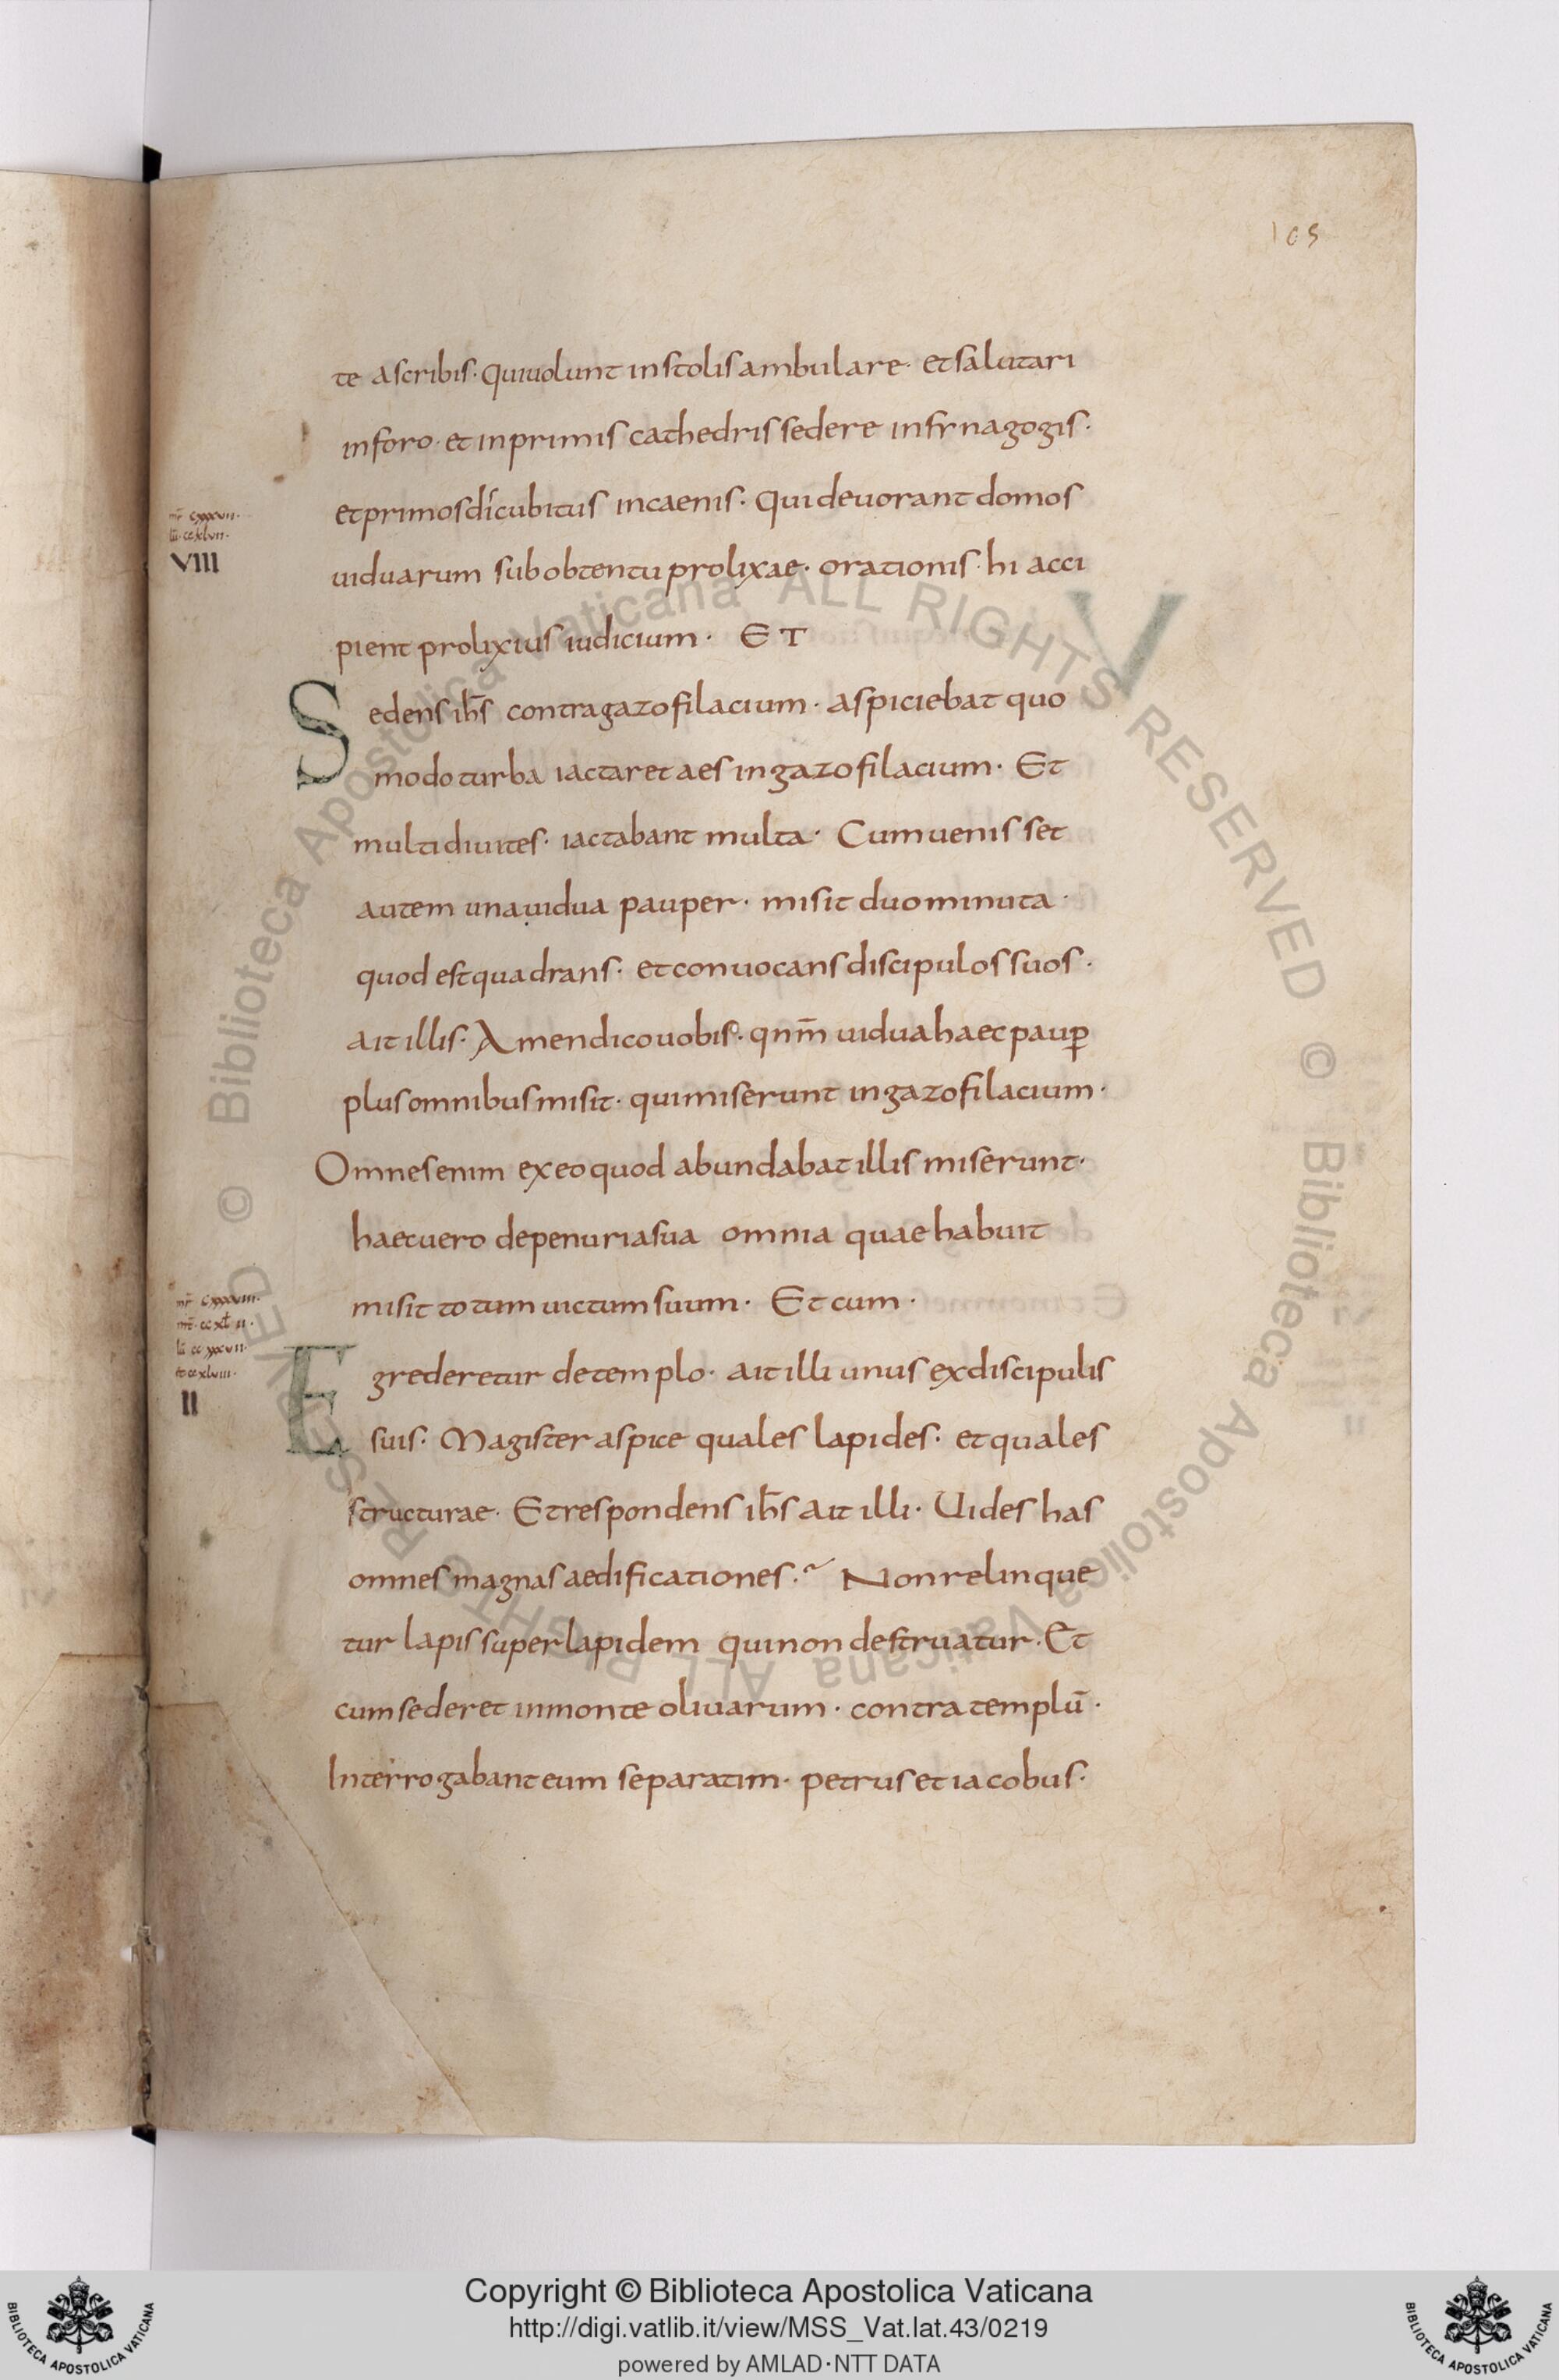 105
te ascribis· Quiuolunt instolisambulare· etsalutari
inforo· et inprimis cathedris sedere insynagogis·
etprimosdícubitus incaenis· Quideuorant domos
mr̄ cxxxvii·
lū· ccxlvii·
VIII
uiduarum subobtentu prolixae· orationis· hi acci
pient prolixius iudicium· ET
Sedens ih̄s contragazofilacium· aspiciebat quo
modo turba iactaret aes ingazofilacium· Et
multidiuites· iactabant multa· Cumuenisset
autem unauidua pauper· misit duominuta·
quod estquadrans· etconuocansdiscipulossuos·
ait illis· Amendicouobis· qnm̄ uiduahaec paup̱
plusomnibusmisit· quimiserunt ingazofilacium·
Omnesenim exeoquod abundabat illis miserunt·
haecuero depenuriasua omnia quaehabuit
misit totum uictum suum· Et cum·
II
Egrederetur detemplo· ait illi unus exdiscipulis
suis· Magister aspice quales lapides· etquales
structurae· Etrespondens ih̄s ait illi· Uides has
omnes magnas aedificationes·~ Nonrelinque
tur lapis superlapidem quinon destruatur· Et
cumsederet inmonte oliuarum· contra templū·
Interrogabant eum separatim· petrusetiacobus·
© Biblioteca Apostolica Vaticana ALL RIGHTS RESERVED © Biblioteca Apostolica Vaticana ALL RIGHTS RESERVED
Copyright © Biblioteca Apostolica Vaticana
http://digi.vatlib.it/view/MSS_Vat.lat.43/0219
powered by AMLAD·NTT DATA
BIBLIOTECA APOSTOLICA VATICANA
BIBLIOTECA APOSTOLICA VATICANA